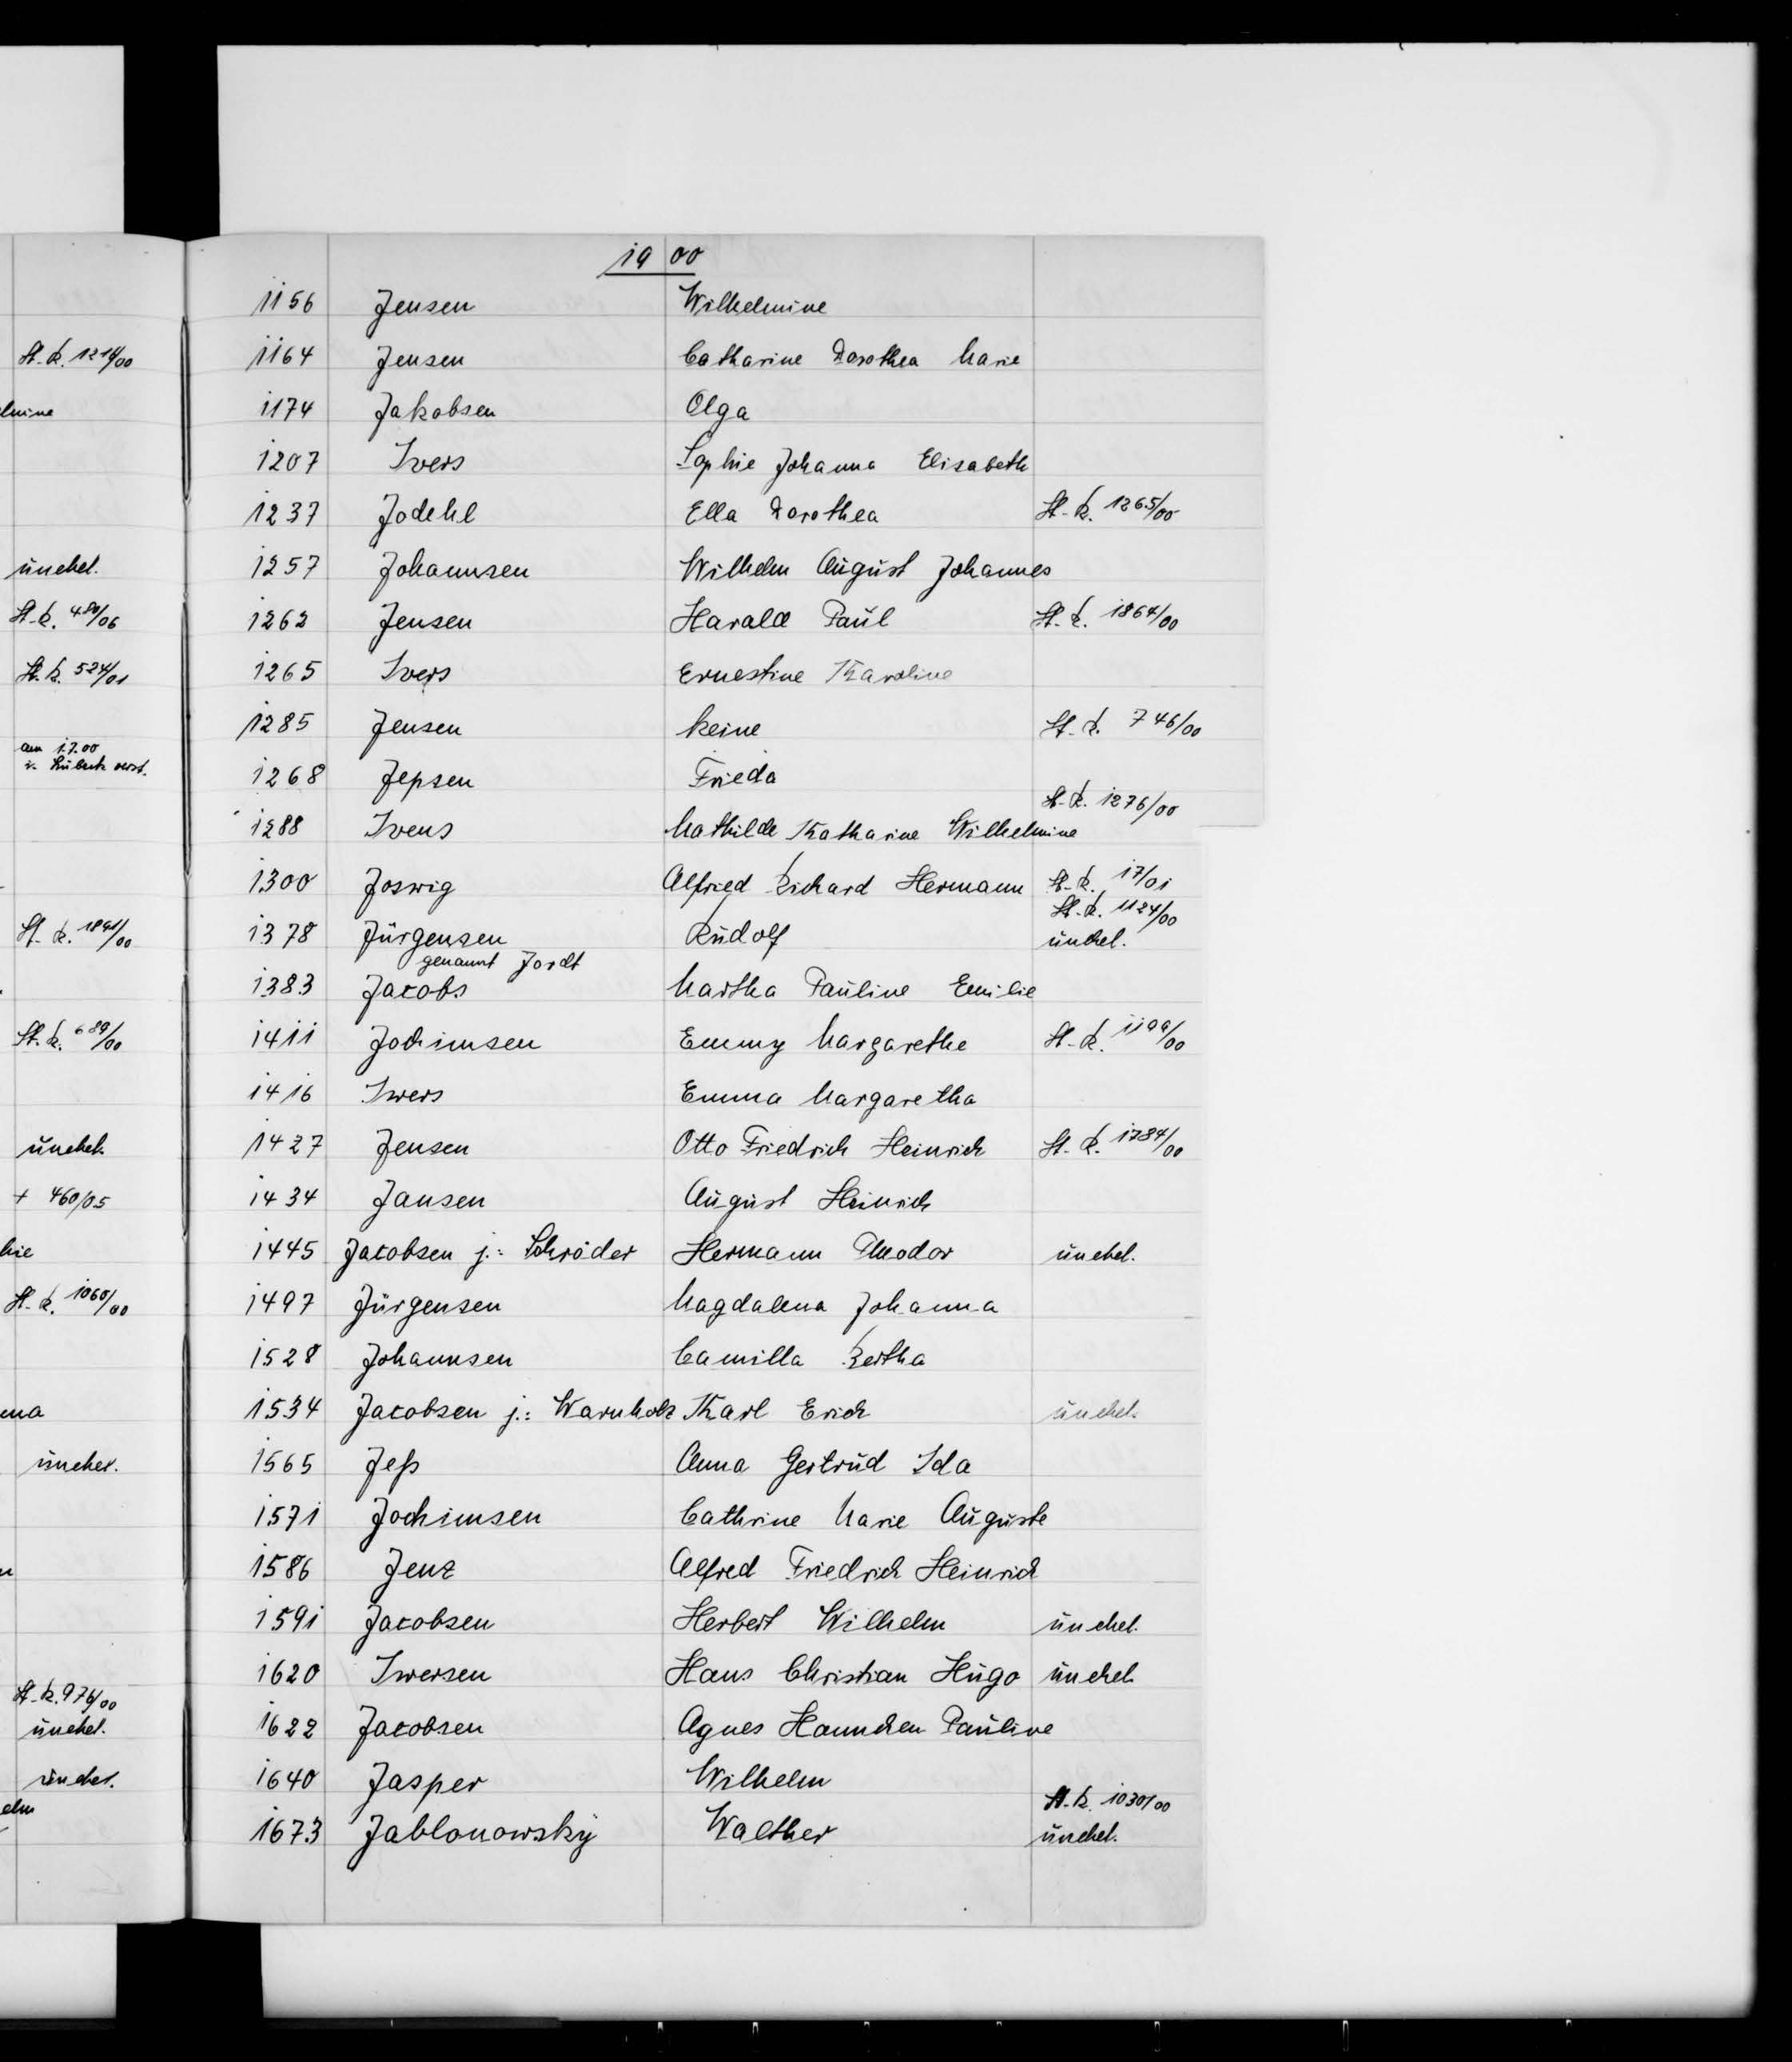 St.R. 1214/00
lmine
unehel.
St.R. 480/06
St.R. 524/01
am 1.7.00
i. Lübeck verst.
St.R. 1891/00
St.R. 689/00
unehel.
+ 460/05
hie
St.R. 1060/00
ma
unehel.
St.R. 976/00
unehel.
unehel.
elm
1900
1156 Jensen Wilhelmine
1164 Jensen Catharine Dorothea Marie
1174 Jakobsen Olga
1207 Ivers Sophie Johanna Elisabeth
1237 Jodehl Ella Dorothea St.R. 1265/00
1257 Johannsen Wilhelm August Johannes
1262 Jensen Harald Paul St.R. 1864/00
1265 Ivers Ernestine Karoline
1285 Jensen keine St.R. 746/00
1268 Jepsen Frieda
St.R. 1276/00
1288 Ivens Mathilde Katharine Wilhelmine
1300 Joswig Alfried Richard Hermann St.R. 17/01
St.R. 1124/00
1378 Jürgensen Rudolf unehel.
genannt Jordt
1383 Jacobs Martha Pauline Emilie
1411 Jochimsen Emmy Margarethe St.R. 1199/00
1416 Iwers Emma Margaretha
1427 Jensen Otto Friedrich Heinrich St.R. 1784/00
1434 Jansen August Heinrich
1445 Jacobsen j.: Schröder Hermann Theodor unehel.
1497 Jürgensen Magdalena Johanna
1528 Johannsen Camilla Bertha
1534 Jacobsen j.: Warnholz Karl Erich unehel.
1565 Jeß Anna Gertrud Ida
1571 Jochimsen Cathrine Marie Auguste
1586 Jenz Alfred Friedrich Heinrich
1591 Jacobsen Herbert Wilhelm unehel.
1620 Iwersen Hans Christian Hugo unehel.
1622 Jacobsen Agnes Hannchen Pauline
1640 Jasper Wilhelm
St.R. 1030/00
1673 Jablonowsky Walther unehel.